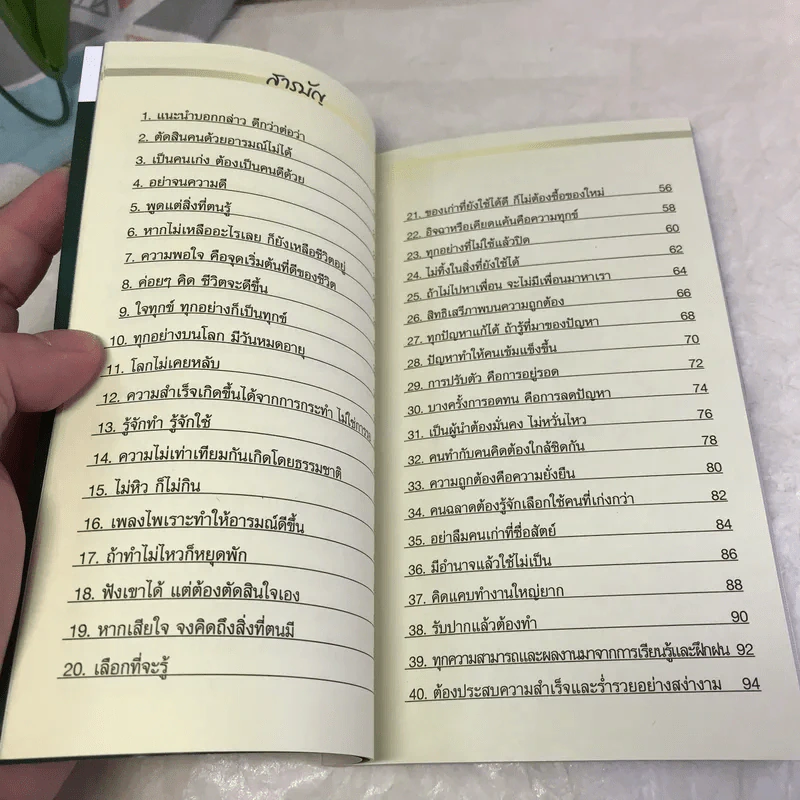 สารบัญ
1. แนะนำบอกกล่าว ดีกว่าต่อว่า
2. ตัดสินคนด้วยอารมณ์ไม่ได้
3. เป็นคนเก่ง ต้องเป็นคนดีด้วย
4. อย่าจนความดี
5. พูดแต่สิ่งที่ตนรู้
6. หากไม่เหลืออะไรเลย ก็ยังเหลือชีวิตอยู่
7. ความพอใจ คือจุดเริ่มต้นที่ดีของชีวิต
8. ค่อยๆ คิด ชีวิตจะดีขึ้น
9. ใจทุกข์ ทุกอย่างก็เป็นทุกข์
10. ทุกอย่างบนโลก มีวันหมดอายุ
11. โลกไม่เคยหลับ
12. ความสำเร็จเกิดขึ้นได้จากการกระทำ ไม่ใช่การ
13. รู้จักทำ รู้จักใช้
14. ความไม่เท่าเทียมกันเกิดโดยธรรมชาติ
15. ไม่หิว ก็ไม่กิน
16. เพลงไพเราะทำให้อารมณ์ดีขึ้น
17. ถ้าทำไม่ไหวก็หยุดพัก
18. ฟังเขาได้ แต่ต้องตัดสินใจเอง
19. หากเสียใจ จงคิดถึงสิ่งที่ตนมี
20. เลือกที่จะรู้
21. ของเก่าที่ยังใช้ได้ดี ก็ไม่ต้องซื้อของใหม่ 56
22. อิจฉาหรือเคียดแค้นคือความทุกข์ 58
23. ทุกอย่างที่ไม่ใช้แล้วปิด 60
24. ไม่ทิ้งในสิ่งที่ยังใช้ได้ 62
25. ถ้าไม่ไปหาเพื่อน จะไม่มีเพื่อนมาหาเรา 64
26. สิทธิเสรีภาพบนความถูกต้อง 66
27. ทุกปัญหาแก้ได้ ถ้ารู้ที่มาของปัญหา 68
28. ปัญหาทำให้คนเข้มแข็งขึ้น 70
29. การปรับตัว คือการอยู่รอด 72
30. บางครั้งการอดทน คือการลดปัญหา 74
31. เป็นผู้นำต้องมั่นคง ไม่หวั่นไหว 76
32. คนทำกับคนคิดต้องใกล้ชิดกัน 78
33. ความถูกต้องคือความยั่งยืน 80
34. คนฉลาดต้องรู้จักเลือกใช้คนที่เก่งกว่า 82
35. อย่าลืมคนเก่าที่ซื่อสัตย์ 84
36. มีอำนาจแล้วใช้ไม่เป็น 86
37. คิดแคบทำงานใหญ่ยาก 88
38. รับปากแล้วต้องทำ 90
39. ทุกความสามารถและผลงานมาจากการเรียนรู้และฝึกฝน 92
40. ต้องประสบความสำเร็จและร่ำรวยอย่างสง่างาม 94